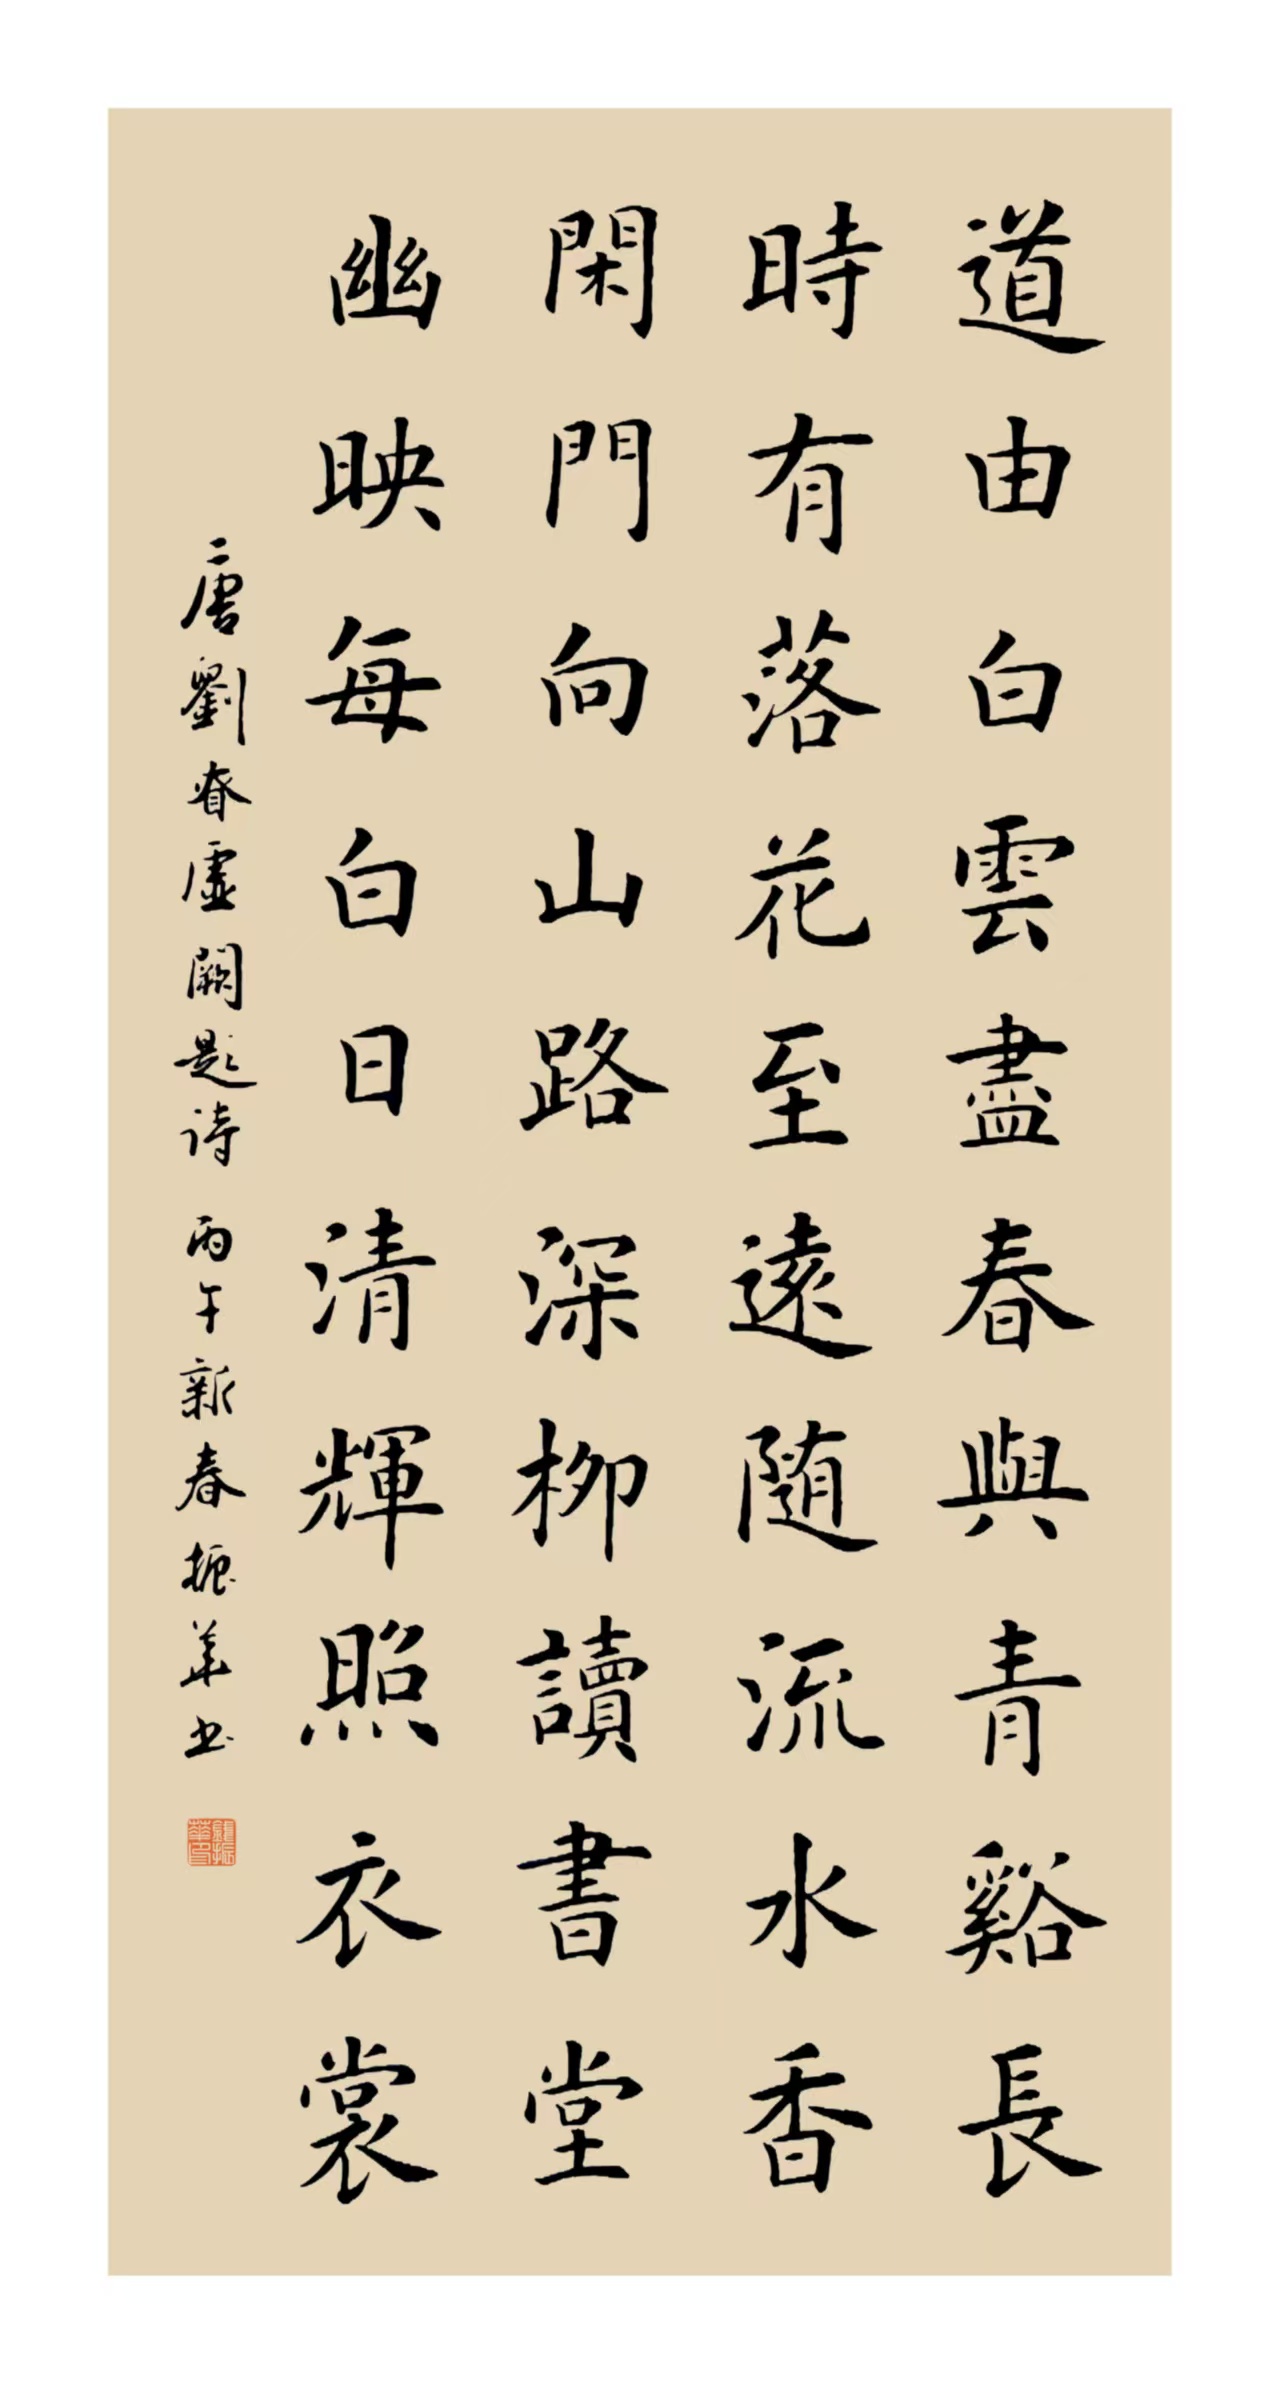 道由白雲盡春與青谿長
時有落花至遠随流水香
閑門向山路深柳讀書堂
幽映每白日清輝照衣裳
唐劉眘虛闕題诗 丙午新春振華书